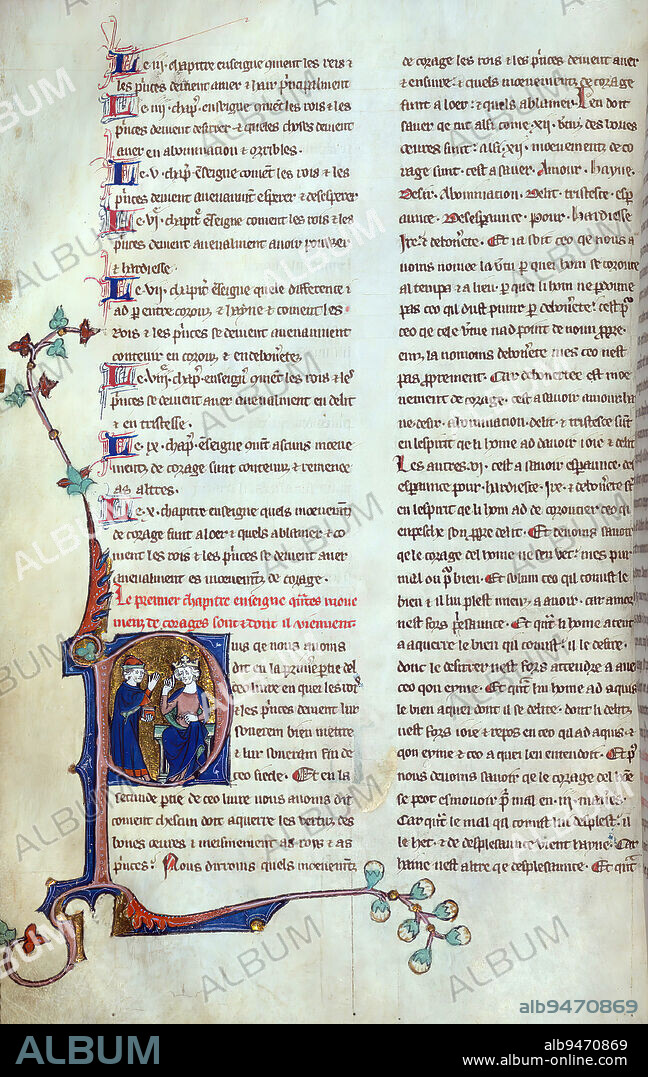 Le .iii. chapitre enseigne coment les reis &
les princes deivent amer & hair principalment
Le .iiii. chap. enseigne coment les rois & les
princes devient desirer & queles choses devient
aver en abominacion & orribles.
Le .v. chap. enseigne coment les rois & les
princes devient avenaument esperer & desesperer
chapitre enseigne coment les rois & les
princes devient avenalment avoir
& hardiesse.
Le .vii. chapitre enseigne quele difference &
ad entre & hayne & coment les
rois & les princes se devient avenaument
contenir en & en debonerete
Le .viii. chap. enseigne coment les rois & les
princes se devient aver avenalment en delit
& en tristesse.
Le .ix. chap. enseigne coment ascuns moeve
ments de corage sunt contenuz &
as altres.
Le .x. chapitre enseigne quels moevementz
de corage sunt a loer & quels a blamer & co
ment les rois & les princes se devient aver
avenalment es moevementz de corage.
Le premier chapitre enseigne moeve
mentz de corages sont & dont il viennent
Puis qe nous avoms
dit en la primere partie del
livre en quei les rois
& les princes devient lur
soverein bien mettre
& lur soverain fin de
ceo siecle. Et en la
secunde partie de ceo livre nous avoms dit
coment chescun doit aquerre les vertuz, des
bones oevres & meismement as rois & as
princes. Nous dirroms quels moevementz
de corage les rois & les princes devient aver
& ensuire & quels moevementz de corage
sunt a loer & quels a blamer. L'en doit
saver qe tut alsi come .xii. des bones
oevres sunt: alsi .xii. moevementz de co
rage sunt. cest a saver. Amour. Hayne.
Desir. Abominacion. Delit. tristesce. esp
eraunce. Desesperaunce. Poour. Hardiesse
Ire. & debonerete. Et ja soit ceo qe nous a
voms nomee la vertu par quei hom se coronte
al temps & a lieu par quei hom ne perdoune
pas ceo qil dust punir par debonerete. cest pur
ceo qe cele vertue nad point de noun propre.
einz la nomoms debonerete mes ceo nest
pas proprement. Car debonerete est moe
nement de corage. cest a savoir amour ha
ne. desir. abominacion. delit. & tristesce sunt
en lesprit qe li home ad davoir joie & delit
Les autres .vi. cest a savoir esperaunce. des
esperaunce. pour. hardiesce. Ire. & debonerete sunt
en lesprit qe li hom ad de coroucier ceo qi
enpesche son propre delit. Et devoms savoir
qe le corage del home ne seu bet: mes pur
mal ou pur bien. Et solum ceo qil conust le
bien & il lui plest mielz a avoir. car amor
nest fors plesaunce. Et quant li home atent
a aquerre le bien qil conust: il le desire.
donc le desirrer nest fors atendre a aver
ceo qon eyme. Et quant lui home ad aquis
le bien aquei dont il se delite. dont li delit,
nest fors joie & repos en ceo qil ad aquis. &
qon eyme & ceo a quei len entendoit. Et pur
nous devoms savoir qe le corage del home
se poet esmovoir pur mal en .iii. manieres.
Car quant le mal qil conust lui desplest: il
le het. & de desplesaunce vient hayne. Car
haine nest altre qe desplesaunce. Et quant
ALBUM
alb9470869
ALBUM
alb9470869
www.album-online.com